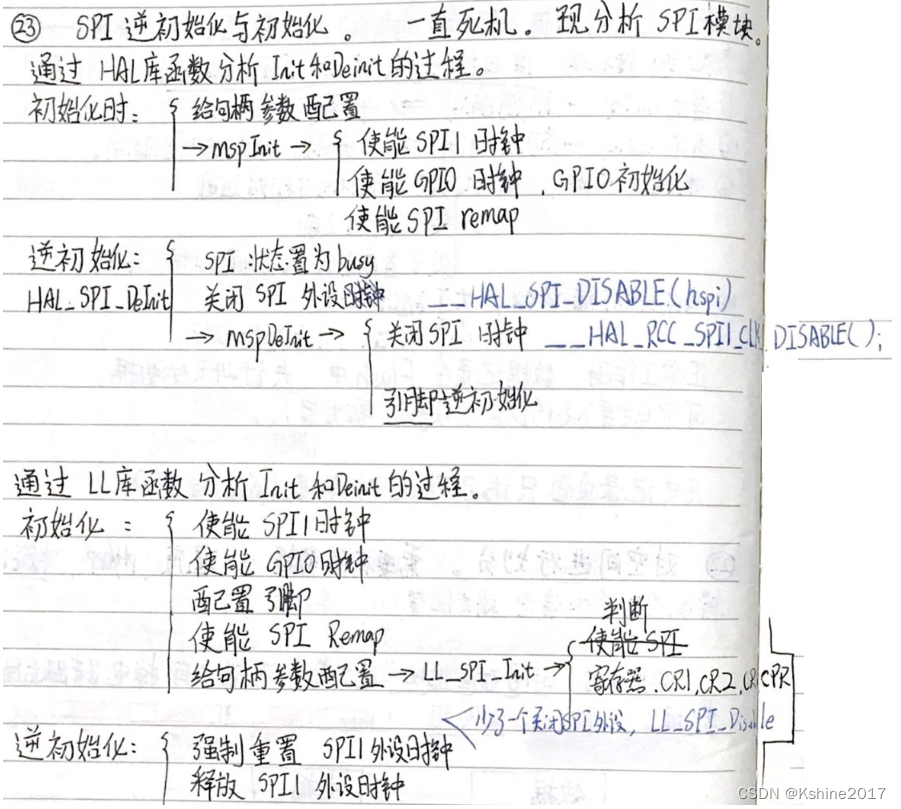 ㉓ SPI 逆初始化与初始化。 一直死机。现分析 SPI模块。
通过 HAL库函数分析 Init和Deinit的过程。
初始化时： 给句柄参数配置
→mspInit→ 使能 SPI1 时钟
使能 GPIO 时钟 . GPIO初始化
使能 SPI remap
逆初始化： SPI 状态置为busy
HAL_SPI_DeInit 关闭 SPI 外设时钟 __HAL_SPI_DISABLE(hspi)
→mspDeInit→ 关闭SPI 时钟 __HAL_RCC_SPI1_CLK DISABLE();
引脚逆初始化
通过 LL库函数 分析 Init 和Deinit的过程。
初始化： 使能 SPI1时钟
使能 GPIO时钟
配置 引脚
使能 SPI Remap
判断
使能SPI
给句柄参数配置→LL_SPI_Init→ 寄存器.CR1,CR2,CRCPR
少了一个关闭SPI外设, LL_SPI_Disable
逆初始化： 强制重置 SPI1外设时钟
释放 SPI1外设时钟
CSDN @Kshine2017